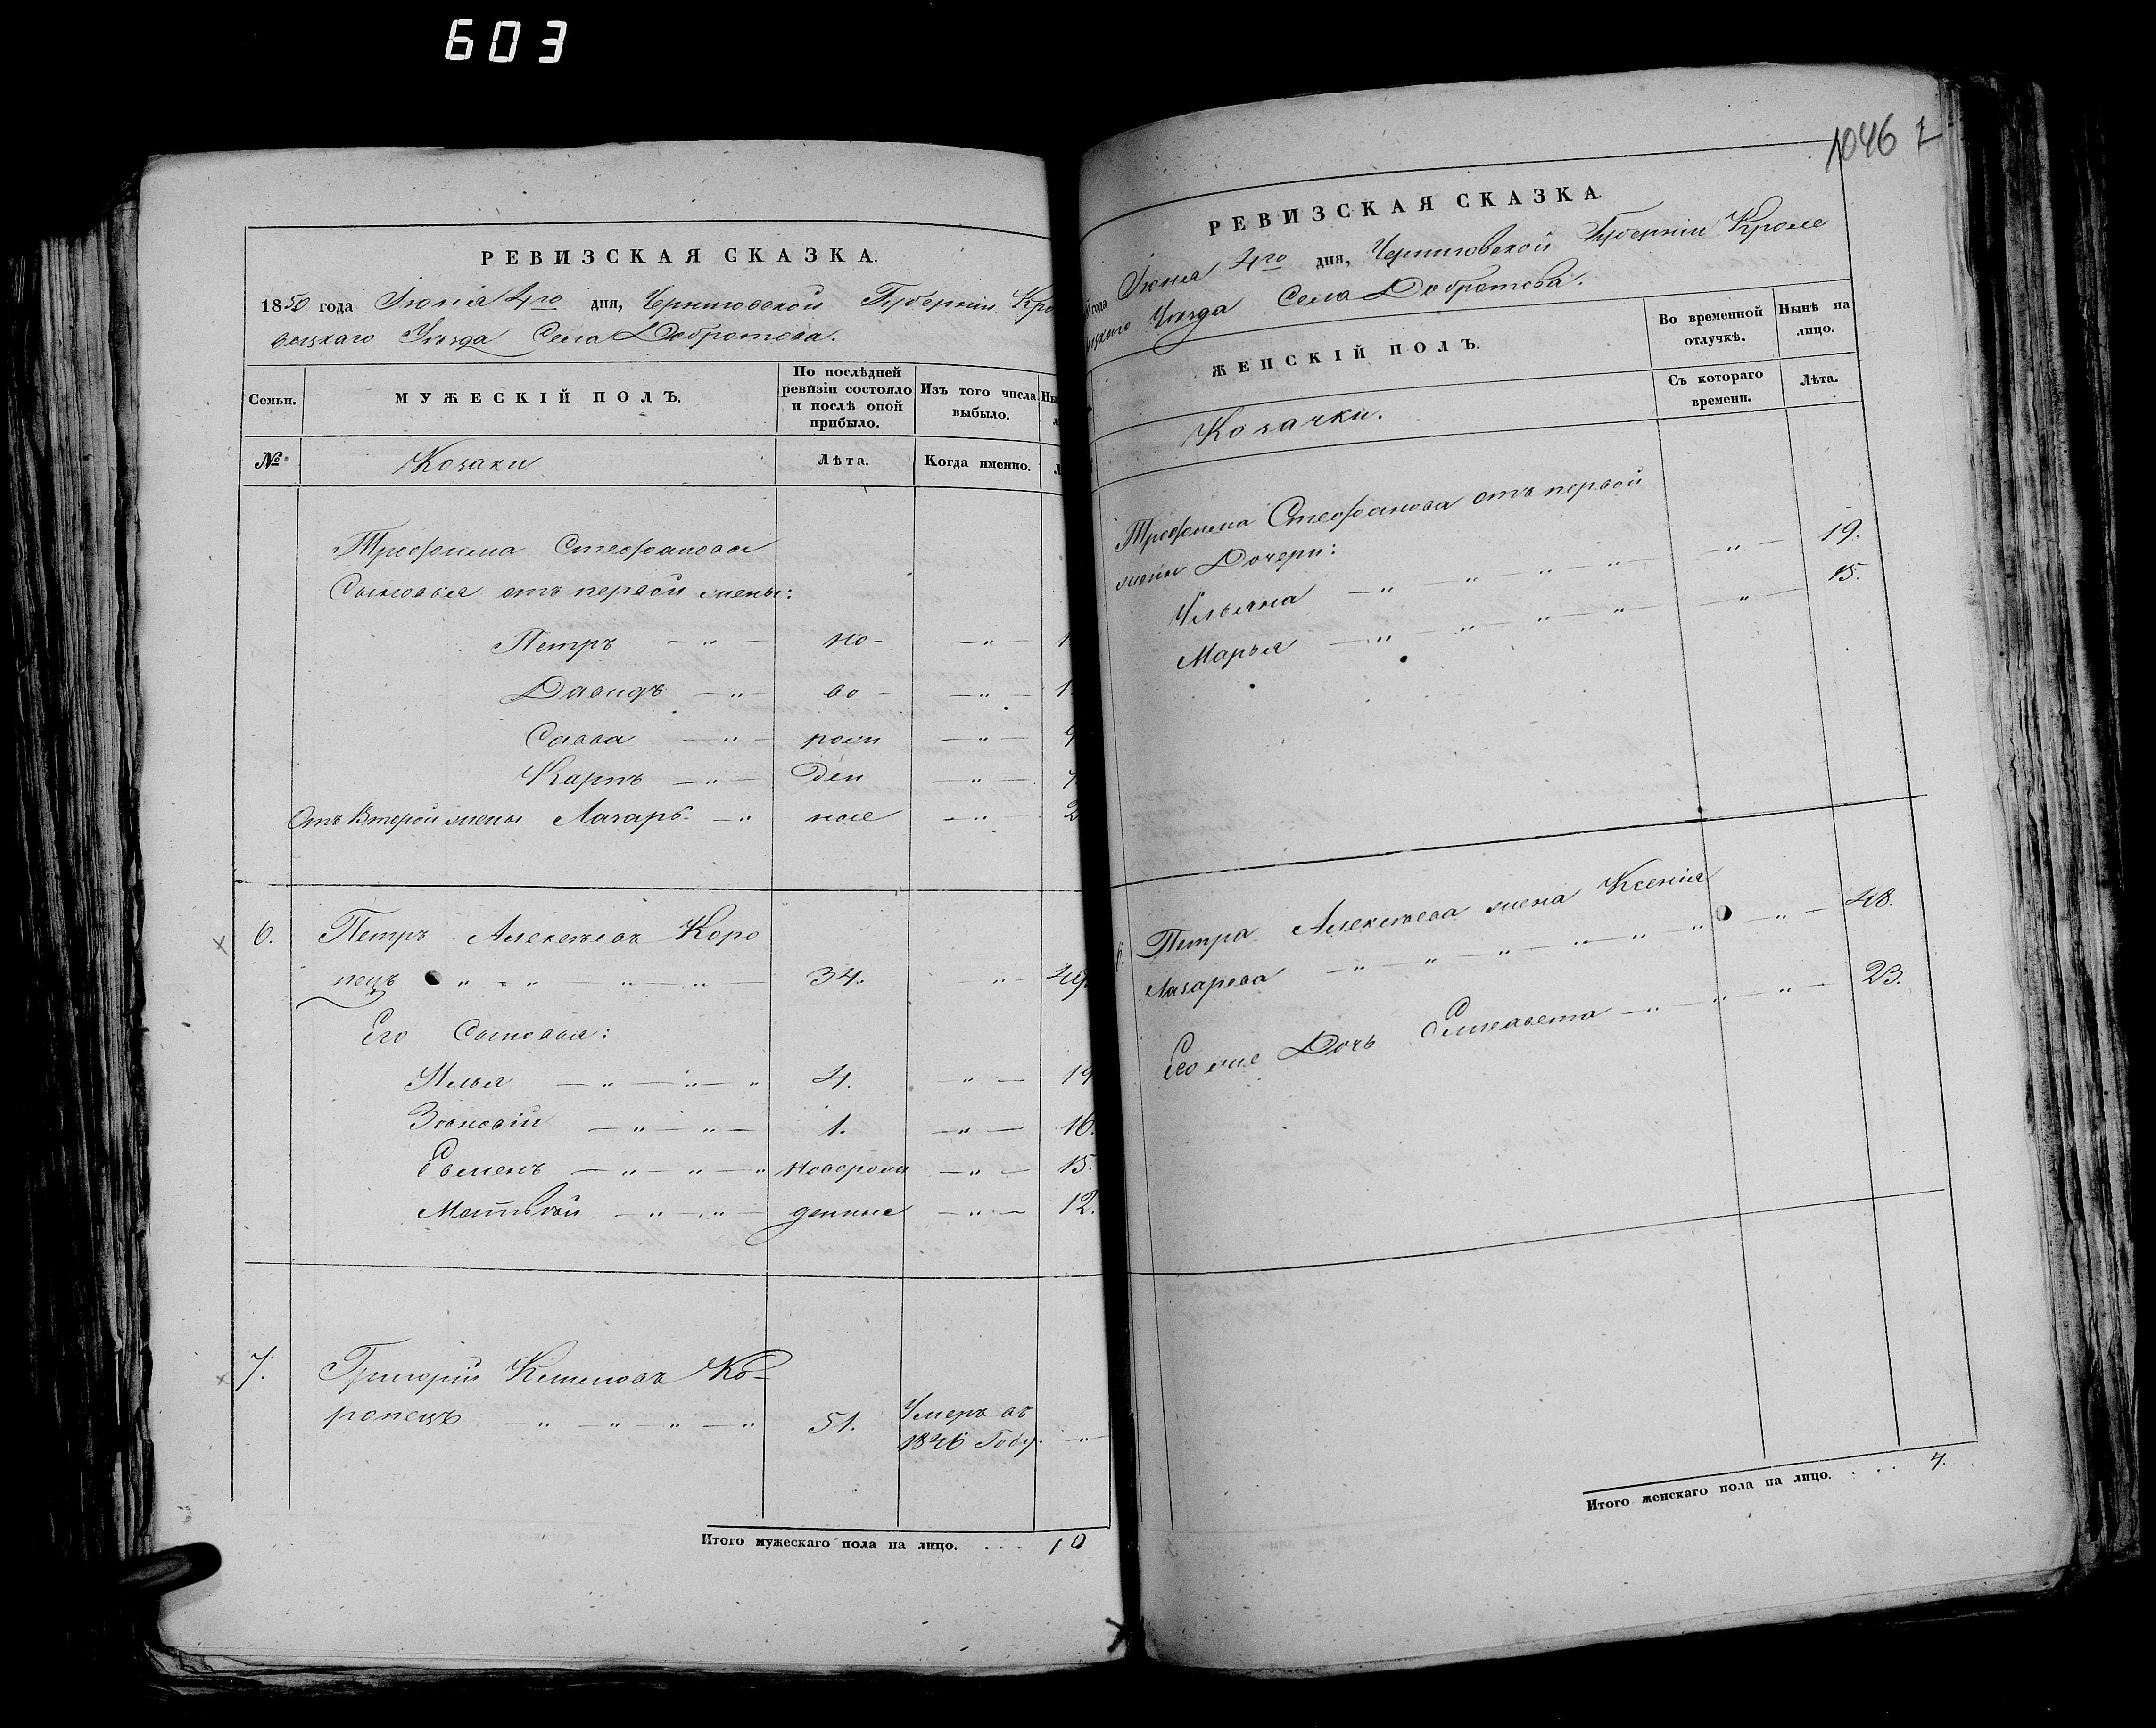 603
РЕВИЗСКАЯ СКАЗКА.
1850 года Іюня 4го дня, Черниговской Губерніи Кро
вецкаго Уѣзда Села Добротова.
Семьи.
МУЖЕСКІЙ ПОЛЪ.
По послѣдней
ревизіи состояло
и послѣ оной
прибыло.
Изъ того числа
выбыло.
№
Козаки
Лѣта.
Когда именно.
Трофима Стефанова
Сыновья отъ первой жены:
Петръ — „ — но- — „ —
Давидъ — „ — во - — „ —
Савва — „ — рож — „ —
Карпъ — „ — ден — „ —
Отъ Второй жены Лазарь — „ ные — „ 2
6. Петръ Алексѣевъ Коро
пецъ „ „ „ „ 34. „ 49.
Его Сыновья:
Илья — „ — „ — „ 4. — „ — 19
Зѣновій — „ — „ — 1. — „ — 16.
Евменъ — „ — „ — „ новорож — „ — 15.
Матвѣй — „ — „ — денные — „ — 12.
7. Григорій Ко-
ропецъ — „ — „ — „ — „ 51. Умеръ въ
1846 Году. — „ —
Итого мужескаго пола на лицо. . . . 10
1046
РЕВИЗСКАЯ СКАЗКА.
года Іюня 4го дня, Черниговской Губерніи Кроле
вецкаго Уѣзда Села Добротова.
ЖЕНСКІЙ ПОЛЪ.
Во временной
отлучкѣ.
Нынѣ на
лицо.
Съ котораго
времени.
Лѣта.
Козачки.
Трофима Стефанова отъ первой
жены Дочери:
Ульяна — „ — „ — „ — „ — „ — 19.
Марья — „ — „ — „ — „ — „ — 15.
6. Петра Алексѣева жена Ксенія
Лазарева — „ — „ — „ — „ — „ — „ — 48.
Его же Дочь Елисавета — „ — „ — „ — 23.
Итого женскаго пола на лицо. . . . 4.